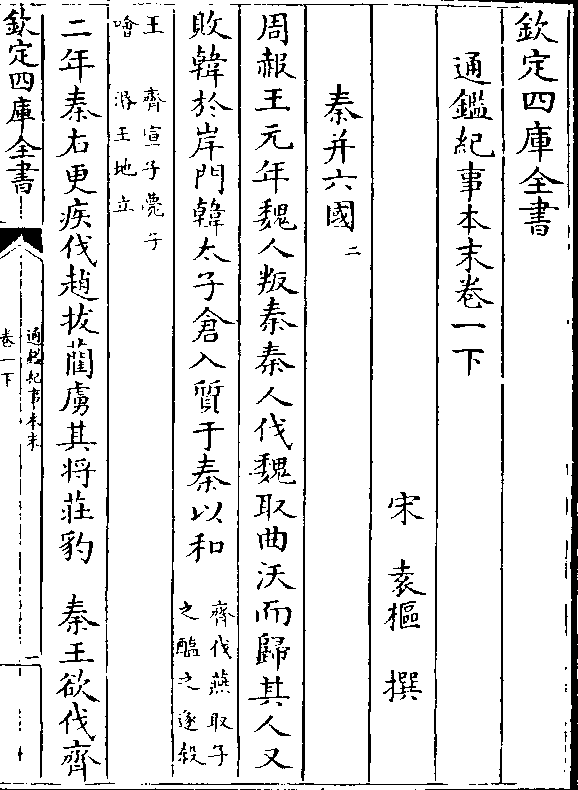 欽定四庫全書
通鑑紀事本末卷一下
宋　袁樞　撰
秦并六國二
周赧王元年魏人叛秦秦人伐魏取曲沃而歸其人又
敗韓於岸門韓太子倉入質于秦以和　齊伐燕取子
之醢之遂殺
王　齊宣子薨子
噲　湣王地立
二年秦右更疾伐趙拔藺虜其將莊豹　秦王欲伐齊
欽定四庫全書
通鑑紀事本末
卷一下
二